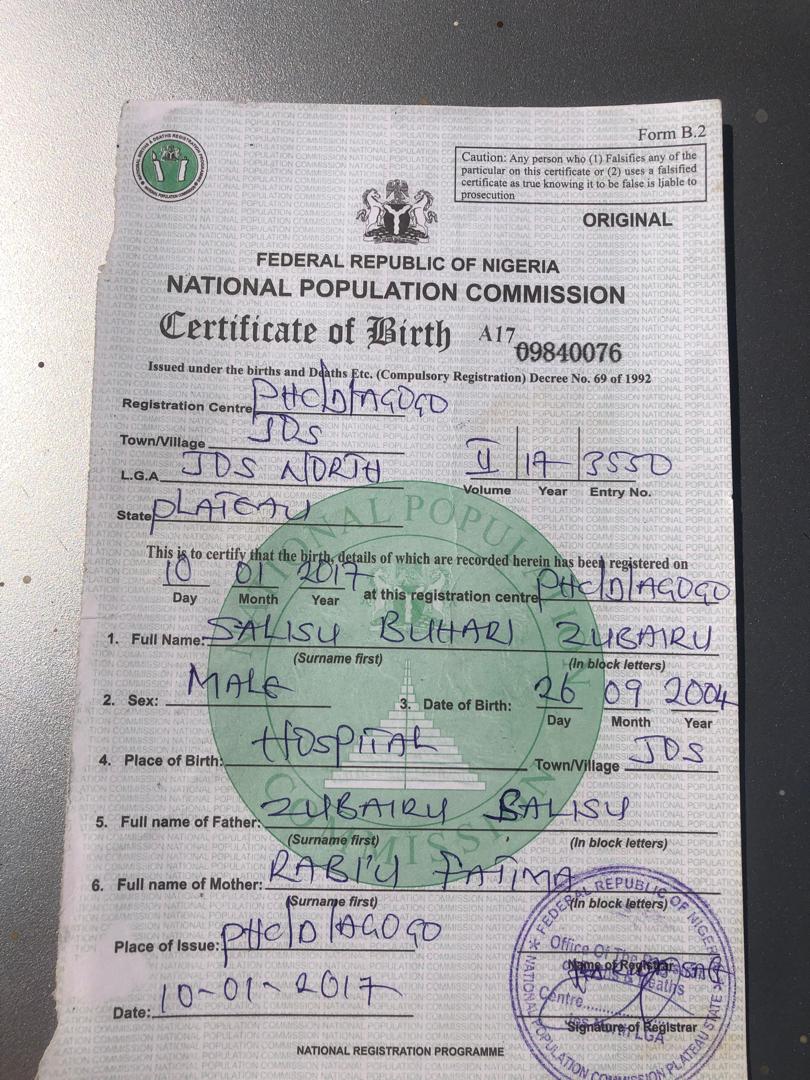 Form B.2
Caution: Any person who (1) Falsifies any of the
particular on this certificate or (2) uses a falsified
certificate as true knowing it to be false is liable to
prosecution
ORIGINAL
FEDERAL REPUBLIC OF NIGERIA
NATIONAL POPULATION COMMISSION
Certificate of Birth A17 09840076
Issued under the births and Deaths Etc. (Compulsory Registration) Decree No. 69 of 1992
Registration Centre PHC/D/AGOGO
Town/Village JOS
L.G.A JOS NORTH II 17 3550
Volume Year Entry No.
State PLATEAU
This is to certify that the birth, details of which are recorded herein has been registered on
10 01 2017 at this registration centre PHC/D/AGOGO
Day Month Year
1. Full Name: SALISU BUHARI ZUBAIRU
(Surname first) (In block letters)
2. Sex: MALE 3. Date of Birth: 26 09 2004
Day Month Year
4. Place of Birth: HOSPITAL Town/Village JOS
5. Full name of Father: ZUBAIRU SALISU
(Surname first) (In block letters)
6. Full name of Mother: RABI'U FATIMA
(Surname first) (In block letters)
Place of Issue: PHC/D/AGOGO
Name of Registrar
Date: 10-01-2017
Signature of Registrar
NATIONAL REGISTRATION PROGRAMME
NATIONAL POPULATION COMMISSION
FEDERAL REPUBLIC OF NIGERIA
Office Of The
Deaths
Centre
LGA
NATIONAL POPULATION COMMISSION PLATEAU STATE